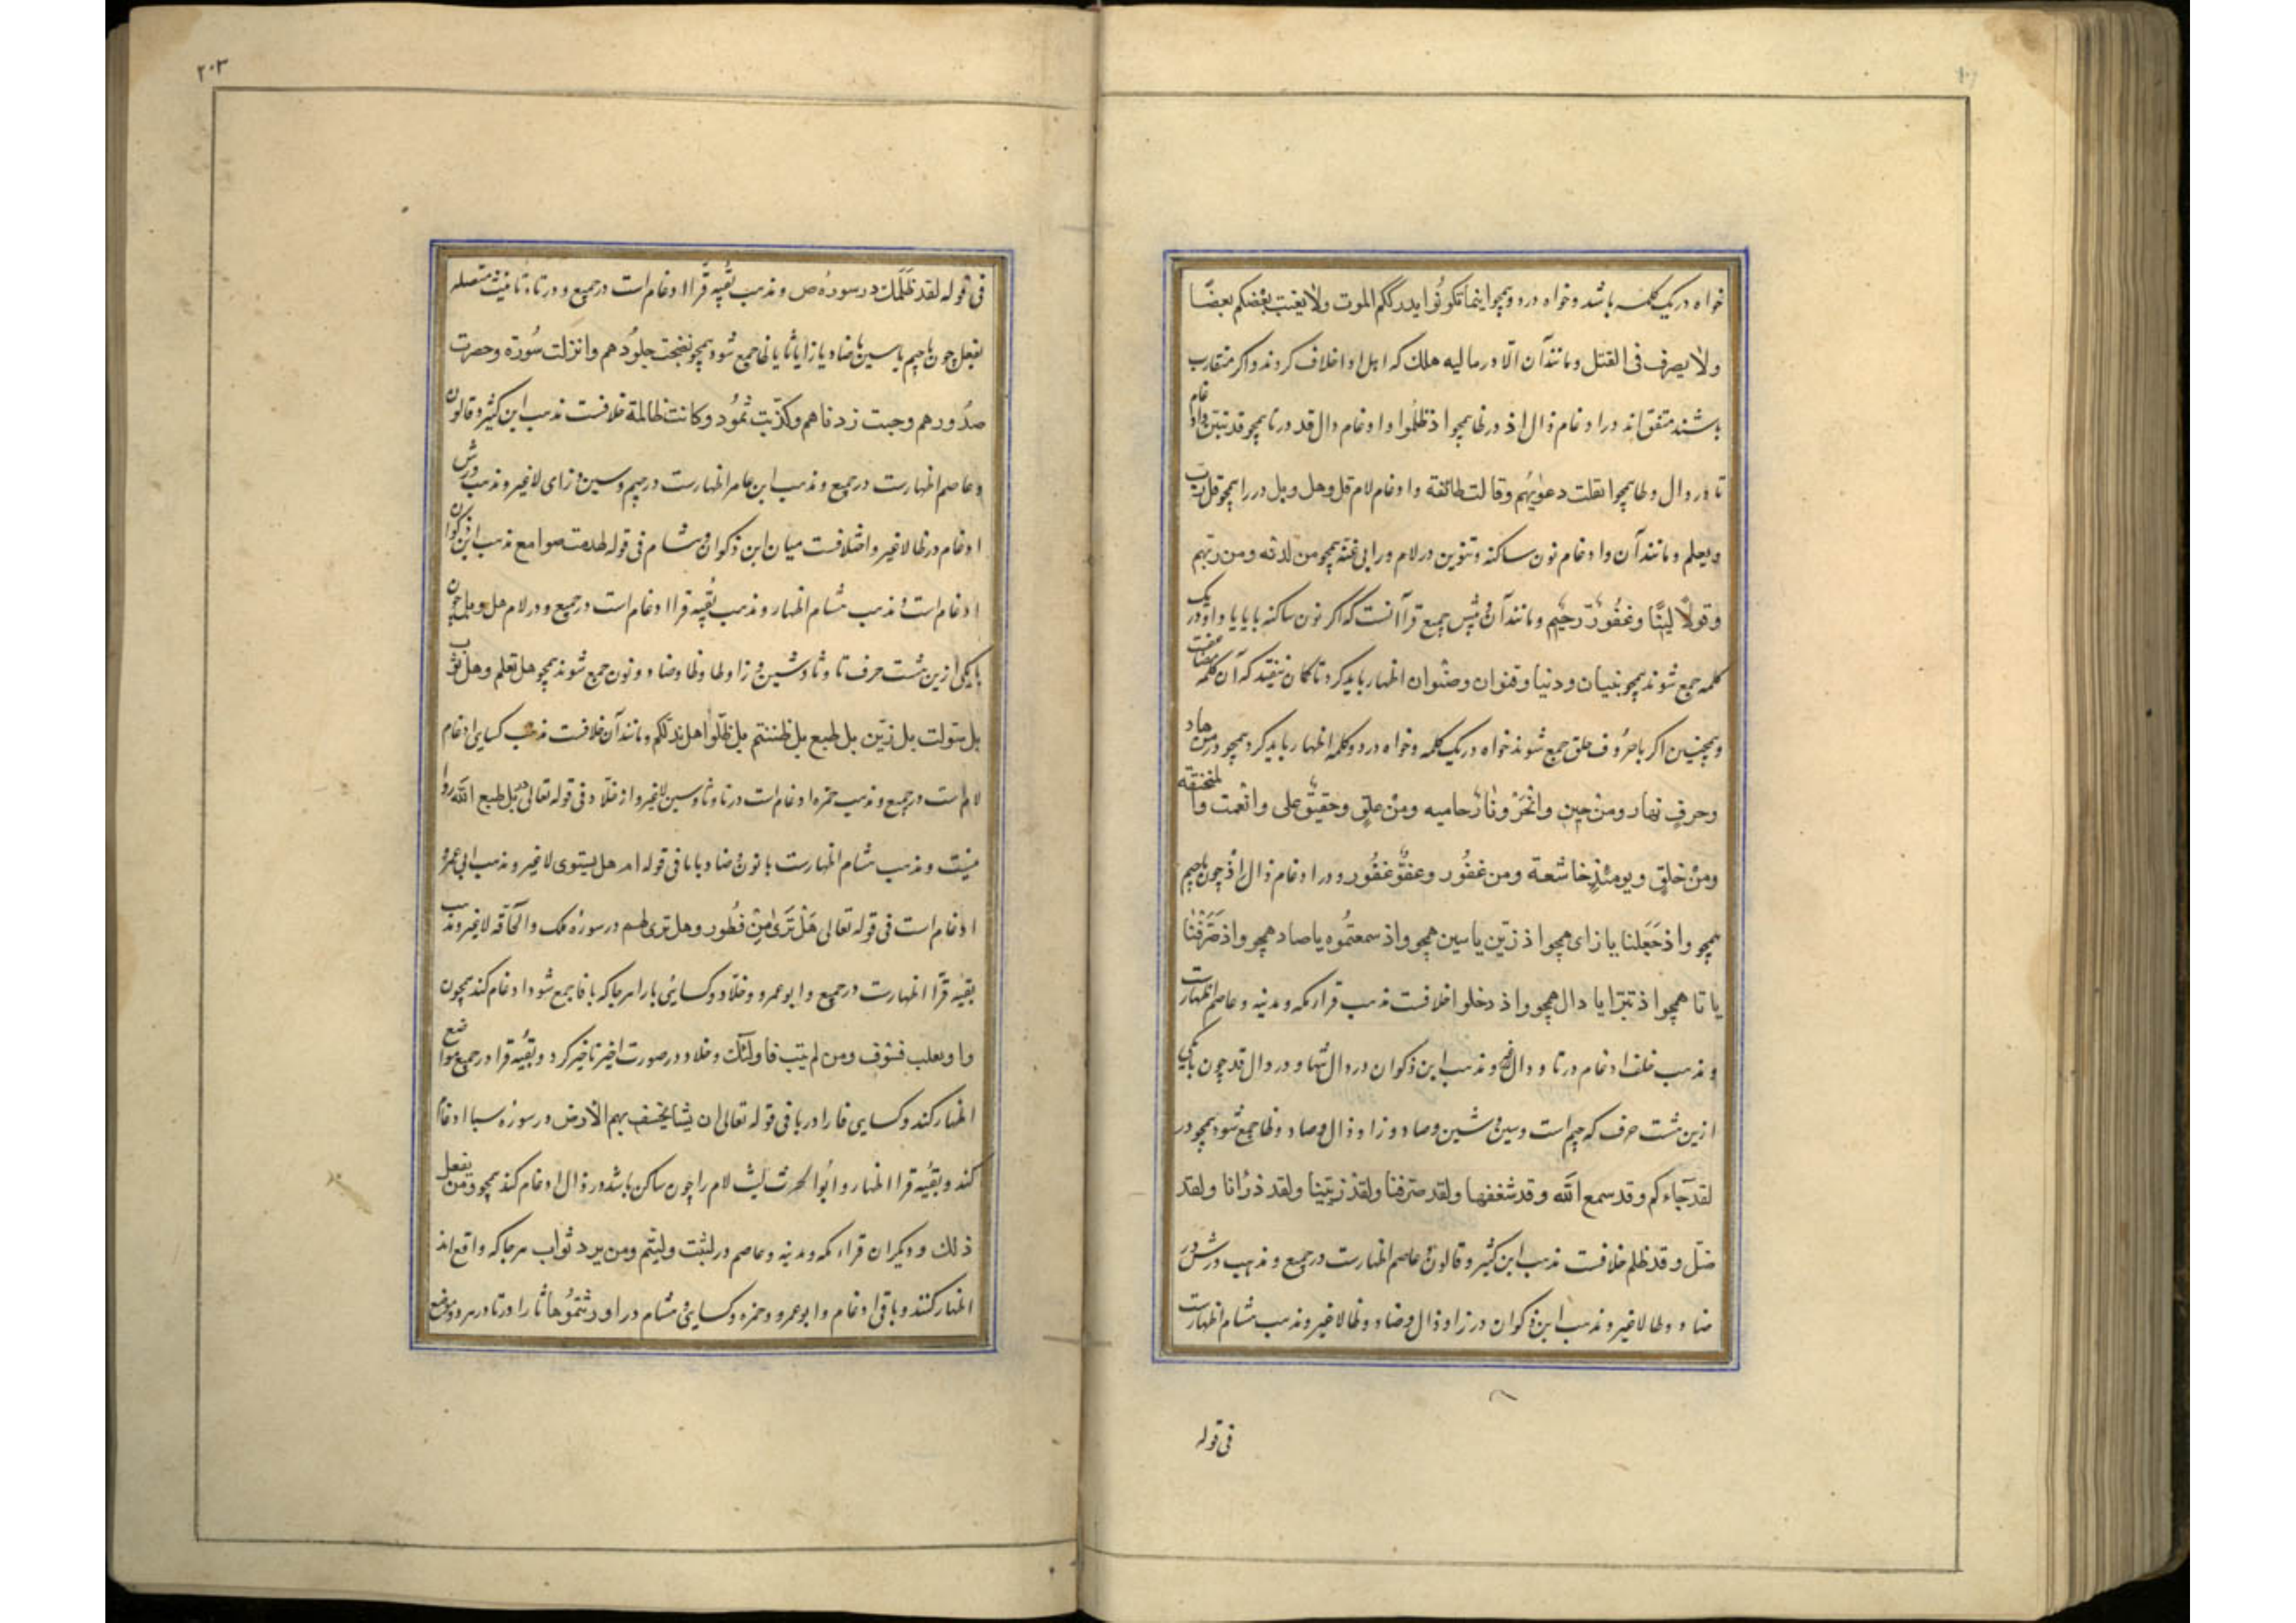 خواه در یک کلمه باشد و خواه در دو همچو اینما تکونوا یدرککم الموت ولا یغتب بعضکم بعضًا
ولا یصرف فی القتل و مانند آن الا در مالیه هلك که اهل ادا خلاف کردند و اکر متقارب
باشند متفق اند در ادغام ذال اذ در ظا همچو اذ ظلموا و ادغام دال قد در تا همچو قد تبین و ادغام
تا در دال و طا همچو اثقلت دعوا و قالت طائفة و ادغام لام قل و هل و بل در را همچو قل رب
و یعلم و مانند آن و ادغام نون ساکنه و تنوین در لام و را بی غنه همچو من لدنه ومن ربهم
وقولاً لینًا وغفورٌ رحیم و مانند آن و پس جمیع قرا آنست که اکر نون ساکنه با یا یا واو در یک
کلمه جمع شوند همچو بنیان و دنیا و قنوان و صنوان اظهار باید کرد تا کمان نیفتد که آن کلمه
و همچنین اکر با حروف حلق جمع شوند خواه در یک کلمه و خواه در دو کلمه اظهار باید کرد همچو من هاد
وجرفٍ هار ومن حین وانحر ونارٌ حامیه ومن علق وحقیقٌ علی وانعمت والمنخنقة
ومن خلق ویومئذٍ خاشعة ومن غفور وعفوٌّ غفور و در ادغام ذال اذ چون با جیم
همچو واذ جعلنا یا زای همچو اذ زین یا سین همچو واذ سمعتموه یا صاد همچو واذ صرفنا
یا تا همچو اذ تبرا یا دال همچو واذ دخلوا خلافست مذهب قراء مکه و مدینه و عاصم اظهارست
و مذهب خلف ادغام در تا و دال و مذهب ابن ذکوان در دال تنها و در دال قد چون با یکی
ازین هشت حرف که جیم است و سین و شین و صاد و زا و ذال و ضاد و ظا جمع شود همچو در
لقد جاءکم وقد سمع الله وقد شغفها ولقد صرفنا ولقد زینا ولقد ذرانا ولقد
ضل وقد ظلم خلافست مذهب ابن کثیر و قالون و عاصم اظهارست در جمیع و مذهب ورش در
ضاد و ظا لا غیر و مذهب ابن ذکوان در زا و ذال و ضاد و ظا لا غیر و مذهب هشام اظهارست
فی قوله
٢٠٣
فی قوله لقد ظلمك در سوره ص و مذهب بقیه قرا ادغام است در جمیع و در تاء تانیث متصله
بفعل چون با جیم یا سین یا صاد یا زا یا ثا یا ظا جمع شود همچو نضجت جلودهم وانزلت سورة وحصرت
صدورهم وجبت زدناهم وکذبت ثمود وکانت ظالمة خلافست مذهب ابن کثیر و قالون
و عاصم اظهارست در جمیع و مذهب ابن عامر اظهارست در جیم و سین و زای لا غیر و مذهب ورش
ادغام در ظا لا غیر و اختلافست میان ابن ذکوان و هشام فی قوله لهدمت صوامع مذهب ابن ذکوان
ادغام است و مذهب هشام اظهار و مذهب بقیه قرا ادغام است در جمیع و در لام هل و بل چون
با یکی ازین هشت حرف تا و ثا و سین و زا و طا و ظا و ضاد و نون جمع شوند همچو هل تعلم وهل ثوب
بل سولت بل زین بل طبع بل ظننتم بل ضلوا هل ندلکم و مانند آن خلافست مذهب کسایی ادغام
لام است در جمیع و مذهب حمزه ادغام است در تا و ثا و سین لا غیر و از خلاد فی قوله تعالی بل طبع الله
و مذهب هشام اظهارست با نون و ضاد و با تا فی قوله ام هل یستوی لا غیر و مذهب ابی عمرو
ادغام است فی قوله تعالی هل تری من فطور وهل تری لهم در سوره ملک و الحاقه لا غیر و مذهب
بقیه قرا اظهارست در جمیع و ابو عمرو و خلاد و کسایی با را هر جا که با فا جمع شود ادغام کند همچون
او یغلب فسوف ومن لم یتب فاولئك و خلاد در صورت اخیر تخییر کرد و بقیه قرا در جمیع مواضع
اظهار کند و کسایی فا را در با فی قوله تعالی ان یشا یخسف بهم الارض در سوره سبا ادغام
کند و بقیه قرا اظهار و ابو الحرث لیث لام را چون ساکن باشد در ذال ادغام کند همچو ومن یفعل
ذلك و دیکران قراء مکه و مدینه و عاصم در لبثت و لبثتم ومن یرد ثواب هر جا که واقع اند
اظهار کنند و باقی ادغام و ابو عمرو و حمزه و کسایی و هشام در اورثتموها ثا را در تا در هر دو موضع